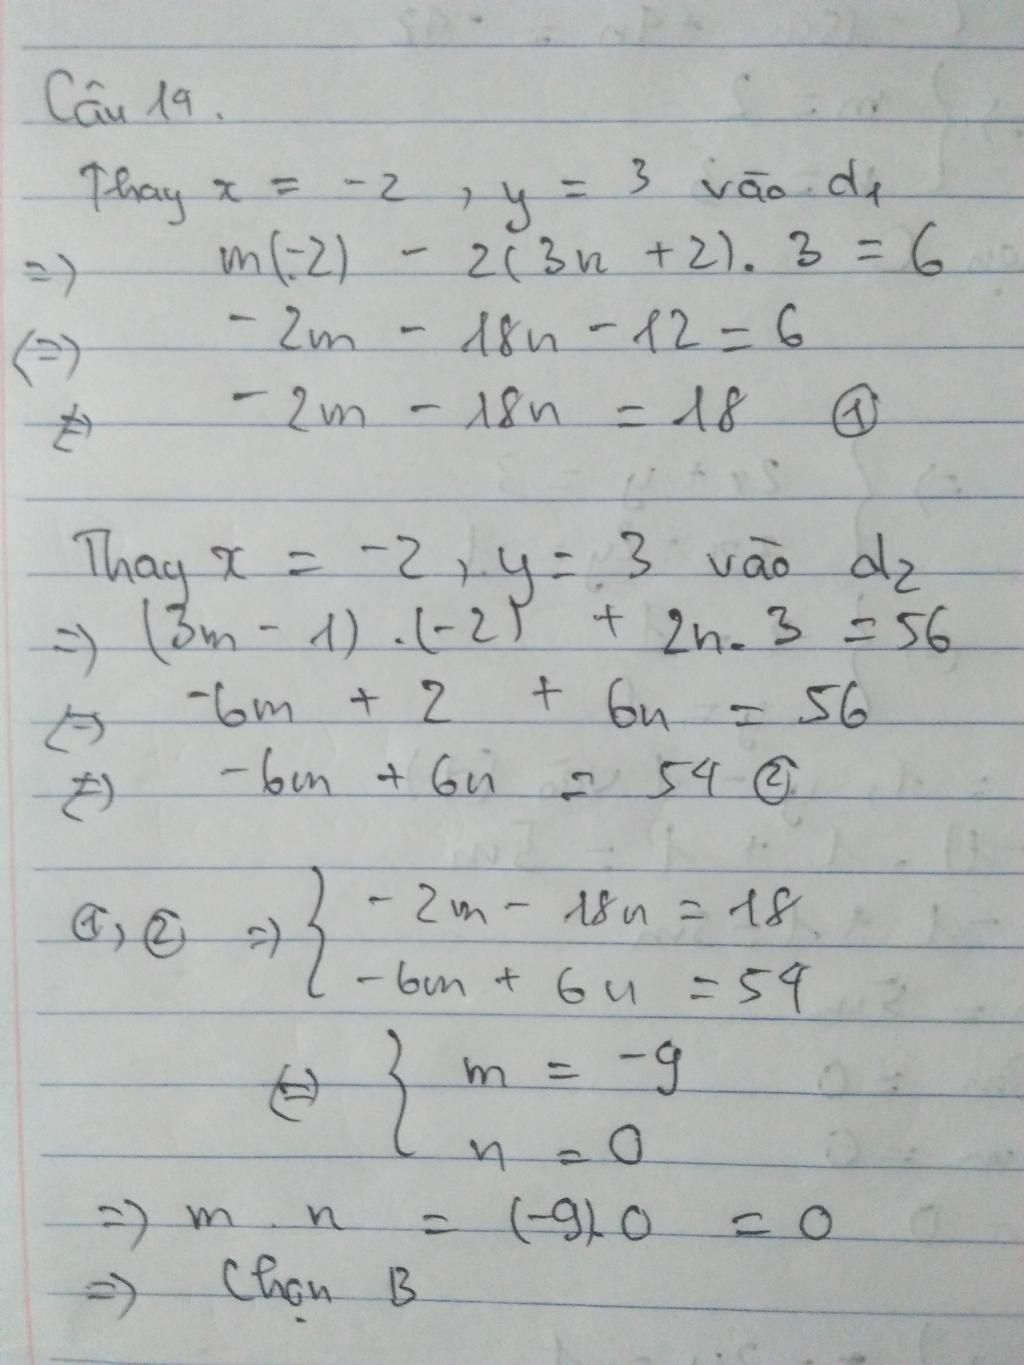 Câu 19.
Thay x = -2 , y = 3 vào d1
=> m(-2) - 2(3n + 2). 3 = 6
<=> -2m - 18n - 12 = 6
<=> -2m - 18n = 18 ①
Thay x = -2, y = 3 vào d2
=> (3m - 1) .(-2) + 2n. 3 = 56
<=> -6m + 2 + 6n = 56
<=> -6m + 6n = 54 ②
①, ② => { -2m - 18n = 18
-6m + 6n = 54
<=> { m = -9
n = 0
=> m . n = (-9).0 = 0
=> Chọn B